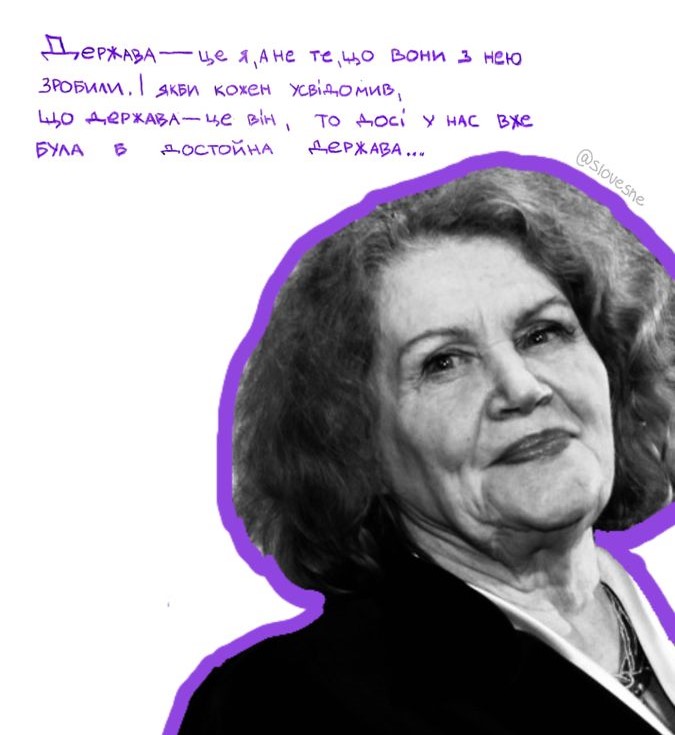 Держава — це я, а не те, що вони з нею
зробили. І якби кожен усвідомив,
що держава — це він, то досі у нас вже
була б достойна держава...
@slovesne